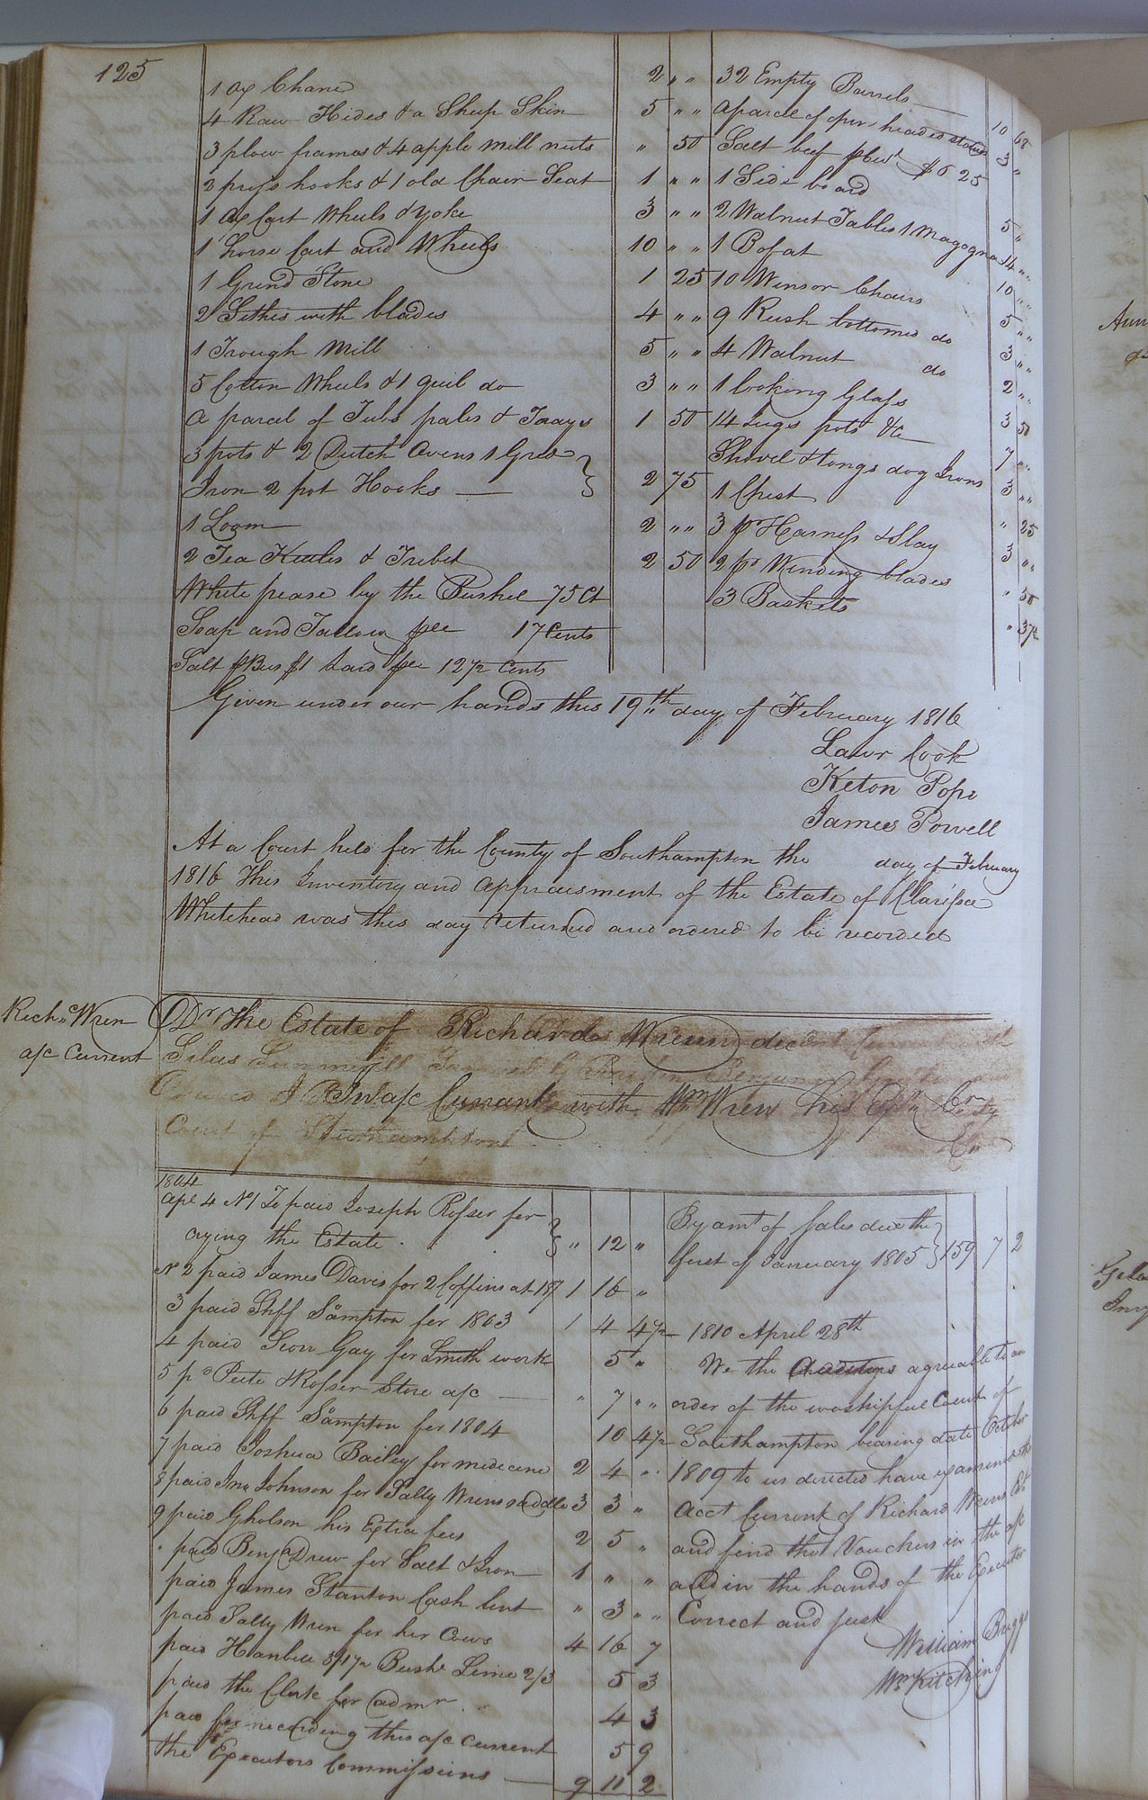 125
1 Ox Chane 2 " "
4 Raw Hides & a Sheep Skin 5 " "
3 plow frames & 4 apple mill nuts " 50
3 hooks & 1 old Chair Seat 1 " "
1 Ox Cart Wheels & Yoke 3 " "
1 horse Cart and Wheels 10 " "
1 Grind Stone 1 25
2 Sithes with blades 4 " "
1 Trough Mill 5 " "
5 Cotton Wheels & 1 quil do 3 " "
a parcel of Tubs pales & Trays 1 50
3 pots & 2 Dutch Ovens 1 Grid
Iron 2 pot Hooks 2 75
1 Loom 2 " "
2 Tea Kittles & Tribet 2 50
White pease by the Bushel 75 Ct
Soap and Tallow 17 Cents
Salt $1 Lard 12 1/2 Cents
32 Empty Barrels 10 68
a parcel of 3 "
Salt beef $6 25
1 Side board 5 "
2 Walnut Tables 1 Magogna 14 "
1 Bofat 10 "
10 Winsor Chairs 5 "
9 Rush bottomed do 3 "
4 Walnut do 2 "
1 looking Glass 3 50
14 Jugs pots &c 7 "
Shovel & tongs dog Irons 3 "
1 Chest " 25
3 pr Harness & Slay 3 "
2 pr Winding blades " 50
3 Baskets " 37 1/2
Given under our hands this 19th day of February 1816
Lawr Cook
Keton Pope
James Powell
At a Court held for the County of Southampton the day of February
1816 This Inventory and Appraisment of the Estate of Clarissa
Whitehead was this day returned and ordered to be recorded
Richd Wren
a/c Current
Dr The Estate of Richard Wrenn decd
In a/c Currant with Wm Wren his Exr Cr
Court of Southampton
1804
Apl 4 No 1 To paid Joseph Rosser for
crying the Estate " 12 "
No 2 paid James Davis for 2 Coffins at 18/ 1 16 "
3 paid Shff Sampton for 1803 1 4 4 1/2
4 paid Gay for Smith work 5 "
5 pd Peete & Rosser Store a/c " 7 "
6 paid Shff Sampton for 1804 10 4 1/2
7 paid Joshua Bailey for medecine 2 4 "
8 paid Jno Johnson for Sally Wrens saddle 3 3 "
9 paid Gholson his Extra fees 2 5 "
" paid Benja Drew for Salt & Iron 1 " "
paid James Stanton Cash lent " 3 "
paid Sally Wren for her Cows 4 16 7
paid Bush Lime 2/3 5 3
paid the Clerk for admr 4 3
paid for recording this a/c current 5 9
the Executors Commissions 9 11 2
By amt of sales due the
first of January 1805 159 7 2
1810 April 28th
We the agreeable to an
order of the worshipful Court of
Southampton bearing date October
1809 to us directed have examined the
acct Current of Richard Wrens Est
and find the Vouchers in the a/c
and in the hands of the Executor
Correct and Just
William
Wm Kitching